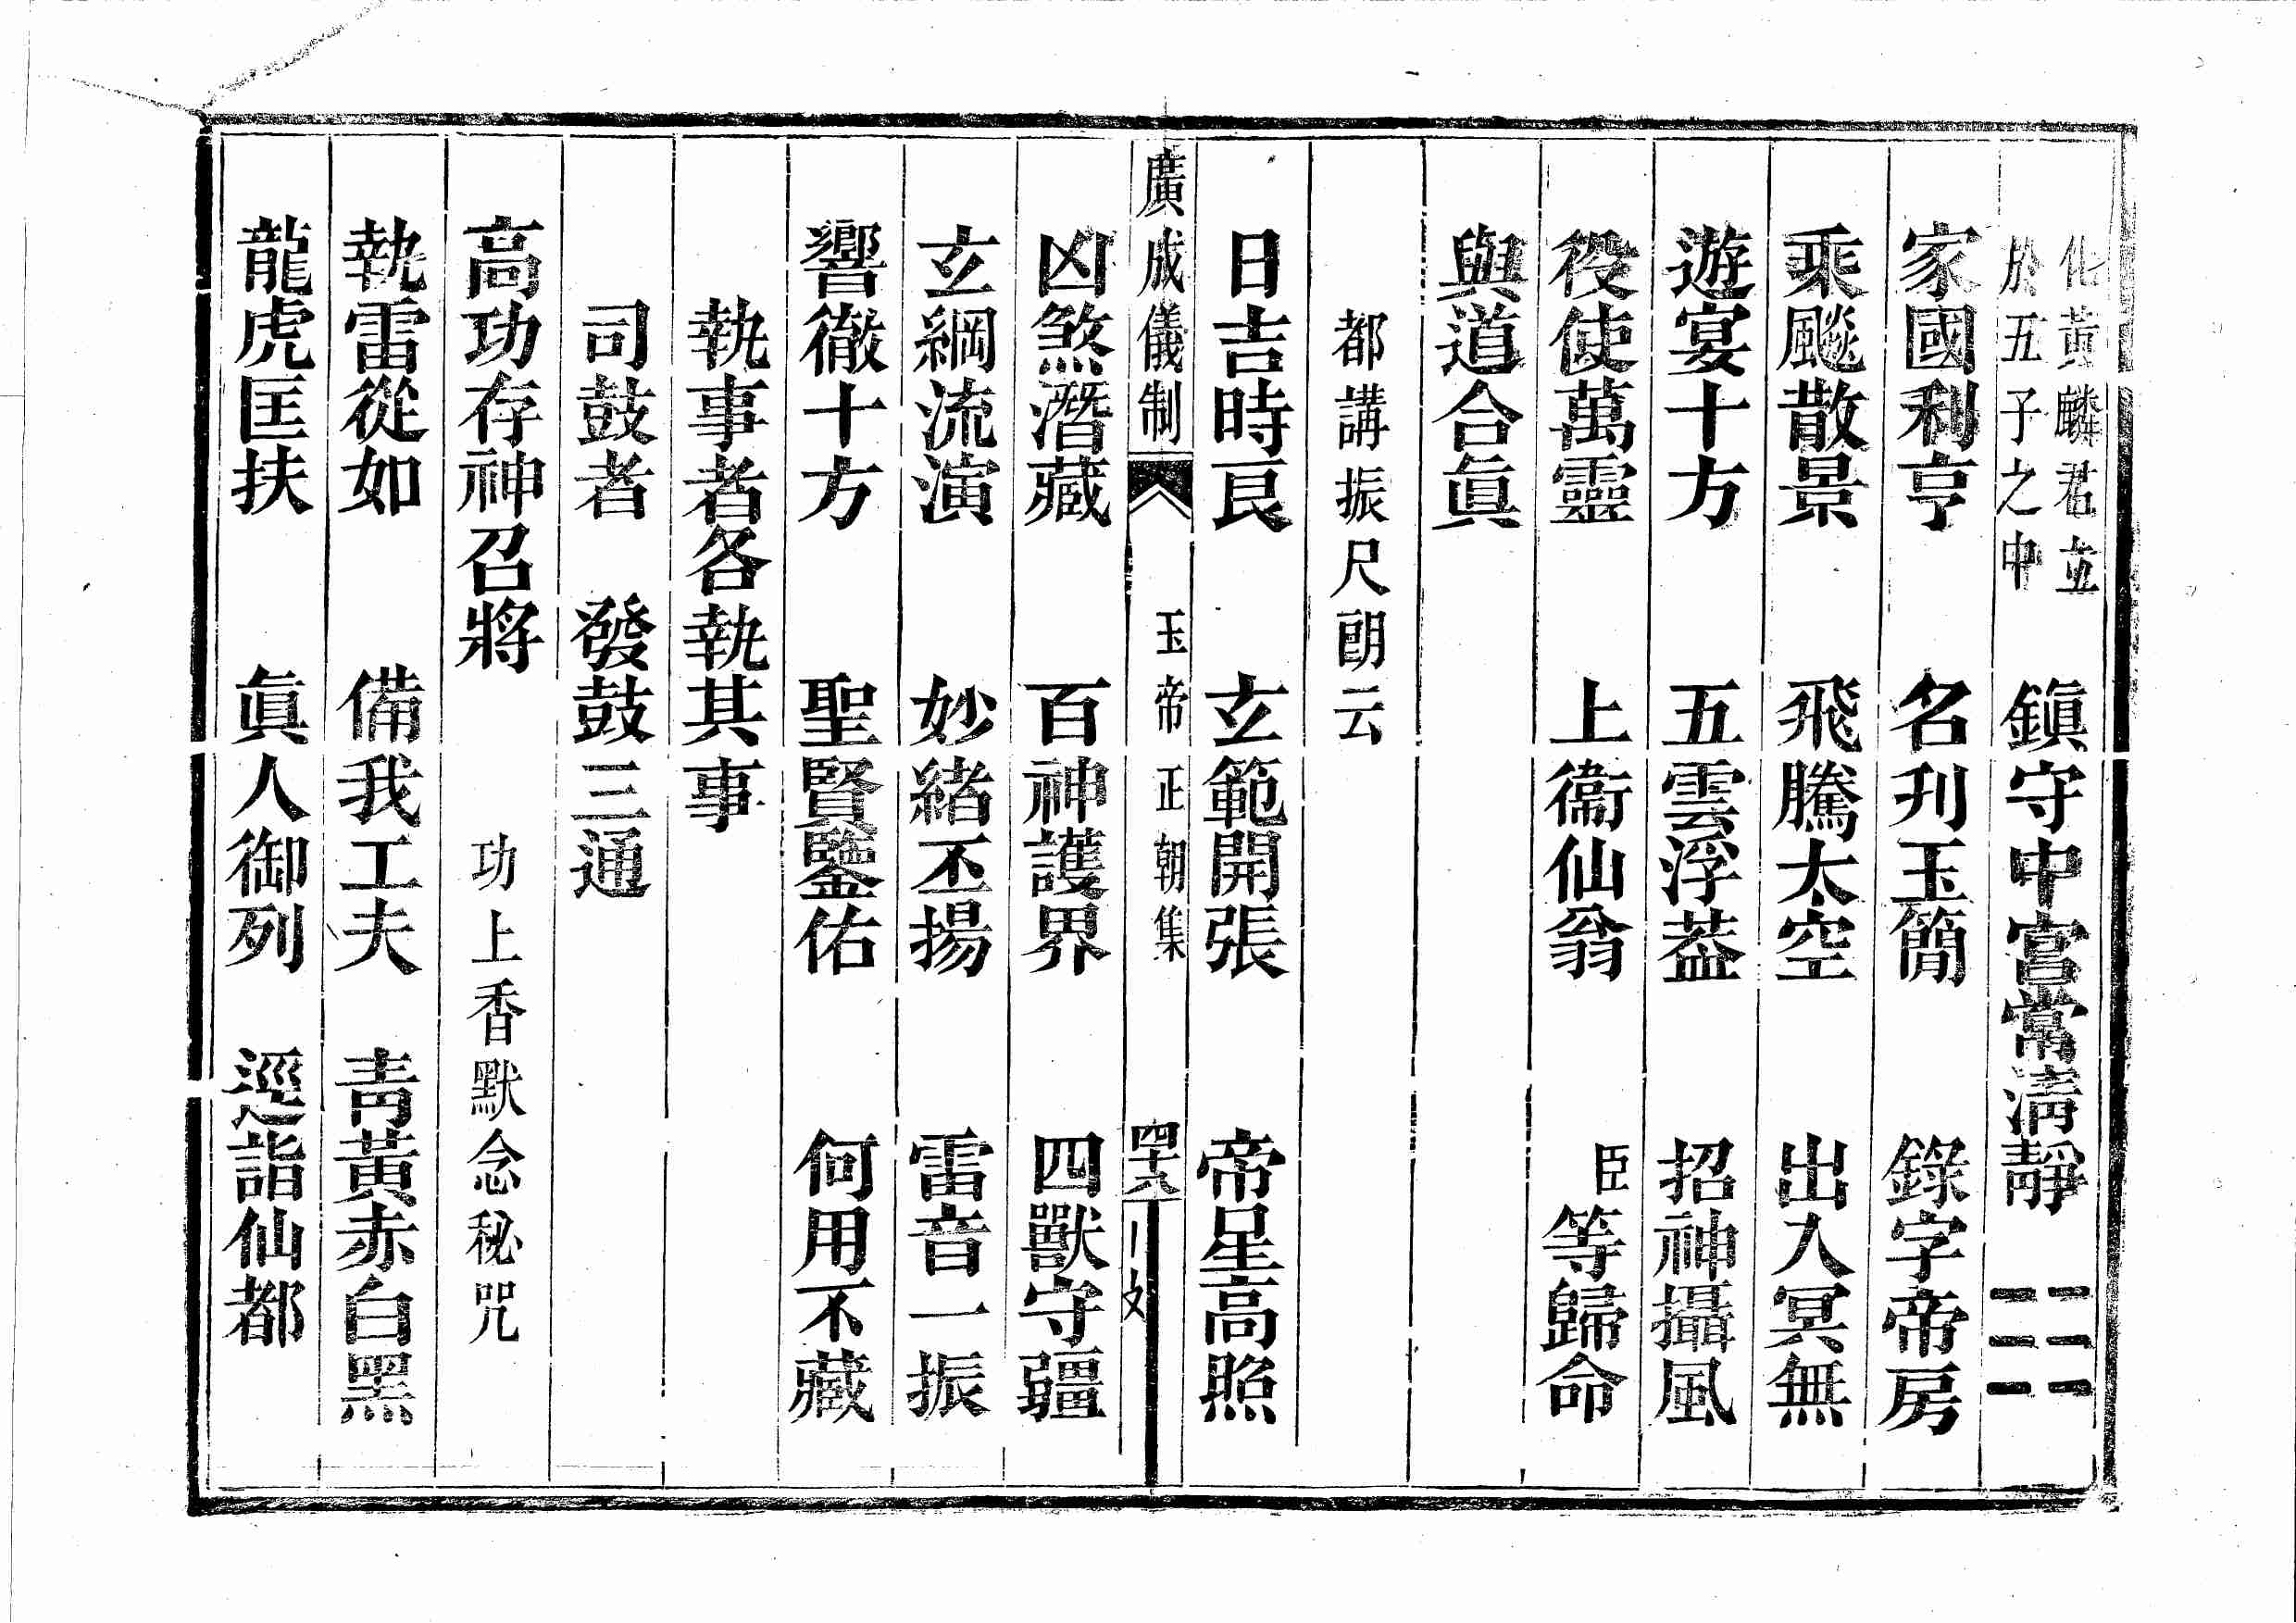 化黃麟君立
於五子之中
鎮守中宮常清靜
家國利亨　名刋玉簡　錄字帝房
乘飈散景　飛騰太空　出入冥無
遊宴十方　五雲浮葢　招神攝風
役使萬靈　上衞仙翁　臣等歸命
與道合眞
都講振尺朗云
日吉時良　玄範開張　帝星高照
廣成儀制　玉帝正朝集　四十八　文
凶煞潛藏　百神護界　四獸守疆
玄綱流演　妙緒丕揚　雷音一振
響徹十方　聖賢鑒佑　何用不藏
執事者各執其事
司鼓者　發鼓三通
高功存神召將　功上香默念秘咒
執雷從如　備我工夫　靑黃赤白黑
龍虎匡扶　眞人御列　逕詣仙都